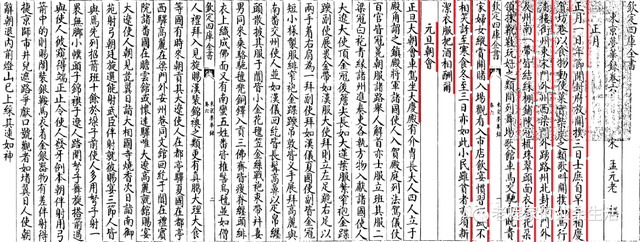 欽定四庫全書
東京夢華錄卷六
宋 孟元老 撰
正月
正月一日年節開封府放關撲三日士庶自早互相慶
賀坊巷以食物動使果實柴炭之類歌叫關撲如馬行
潘樓街州東宋門外州西梁門外踴路州北封丘門外
及州南一帶皆結綵棚鋪陳冠梳珠翠頭面衣著花朶
領抹靴鞋玩好之類間列舞場歌館車馬交馳向晚貴
家婦女縱賞關賭入場觀看入市店飲宴慣習成風不
相笑訝至寒食冬至三日亦如此小民雖貧者亦須新
潔衣服把酒相酬爾
元旦朝會
正旦大朝會車駕坐大慶殿有介冑長大人四人立于
殿角謂之鎮殿將軍諸國使人入賀殿庭列法駕儀仗
百官皆冠冕朝服諸路舉人解首亦士服立班其服二
梁冠白袍青緣諸州進奏吏各執方物入獻諸國使人
大遼大使頂金冠後簷尖長如大蓮葉服紫窄袍金蹀躞
副使展裹金帶如漢服大使拜則立左足跪右足以
兩手著右肩為一拜副使拜如漢儀夏國使副皆金冠
短小樣製服緋窄袍金蹀躞吊敦背叉手展拜高麗與
南番交州使人並如漢儀回紇皆長髯高鼻以疋帛纏
頭散披其服于闐皆小金花氊笠金絲戰袍束帶并妻
男同來乘駱駝氊兜銅鐸入貢三佛齊皆瘦脊纏頭緋
衣上織成佛面又有南蠻五姓番皆椎髻烏氊並如僧
人禮拜入見旋賜漢裝錦襖之類更有真臘大理大食
等國有時來朝貢其大遼使人在都亭驛夏國在都亭
西驛高麗在梁門外安州巷同文館回紇于闐在禮賓
院諸番國在瞻雲館或懷遠驛唯大遼高麗就館賜宴
大遼使人朝見訖翌日詣大相國寺燒香次日詣南御
苑射弓朝廷旋選能射武臣伴射就彼賜宴三節人皆
與焉先列招箭班十餘於垜子前使人多用弩子射一
裹無腳小幞頭子錦襖子遼人踏開弩子舞旋搭箭過
與使人彼窺得端正止令使人發牙例本朝伴射用弓
箭中的則賜鬧裝銀鞍馬衣著金銀器物有差伴射得
捷京師市井兒遮路爭獻口號觀者如堵翌日人使朝
辭朝退內前燈山已上綵其速如神